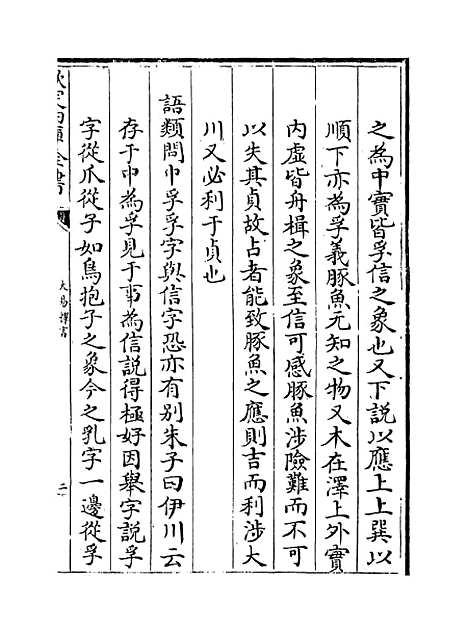 之為中實皆孚信之象也又下說以應上上巽以
順下亦為孚義豚魚无知之物又木在澤上外實
内虛皆舟楫之象至信可感豚魚涉險難而不可
以失其貞故占者能致豚魚之應則吉而利涉大
川又必利于貞也
語類問中孚孚字與信字恐亦有别朱子曰伊川云
存于中為孚見于事為信說得極好因舉字說孚
字從爪從子如鳥抱子之象今之乳字一邊從孚
欽定四庫全書
大易擇言
二